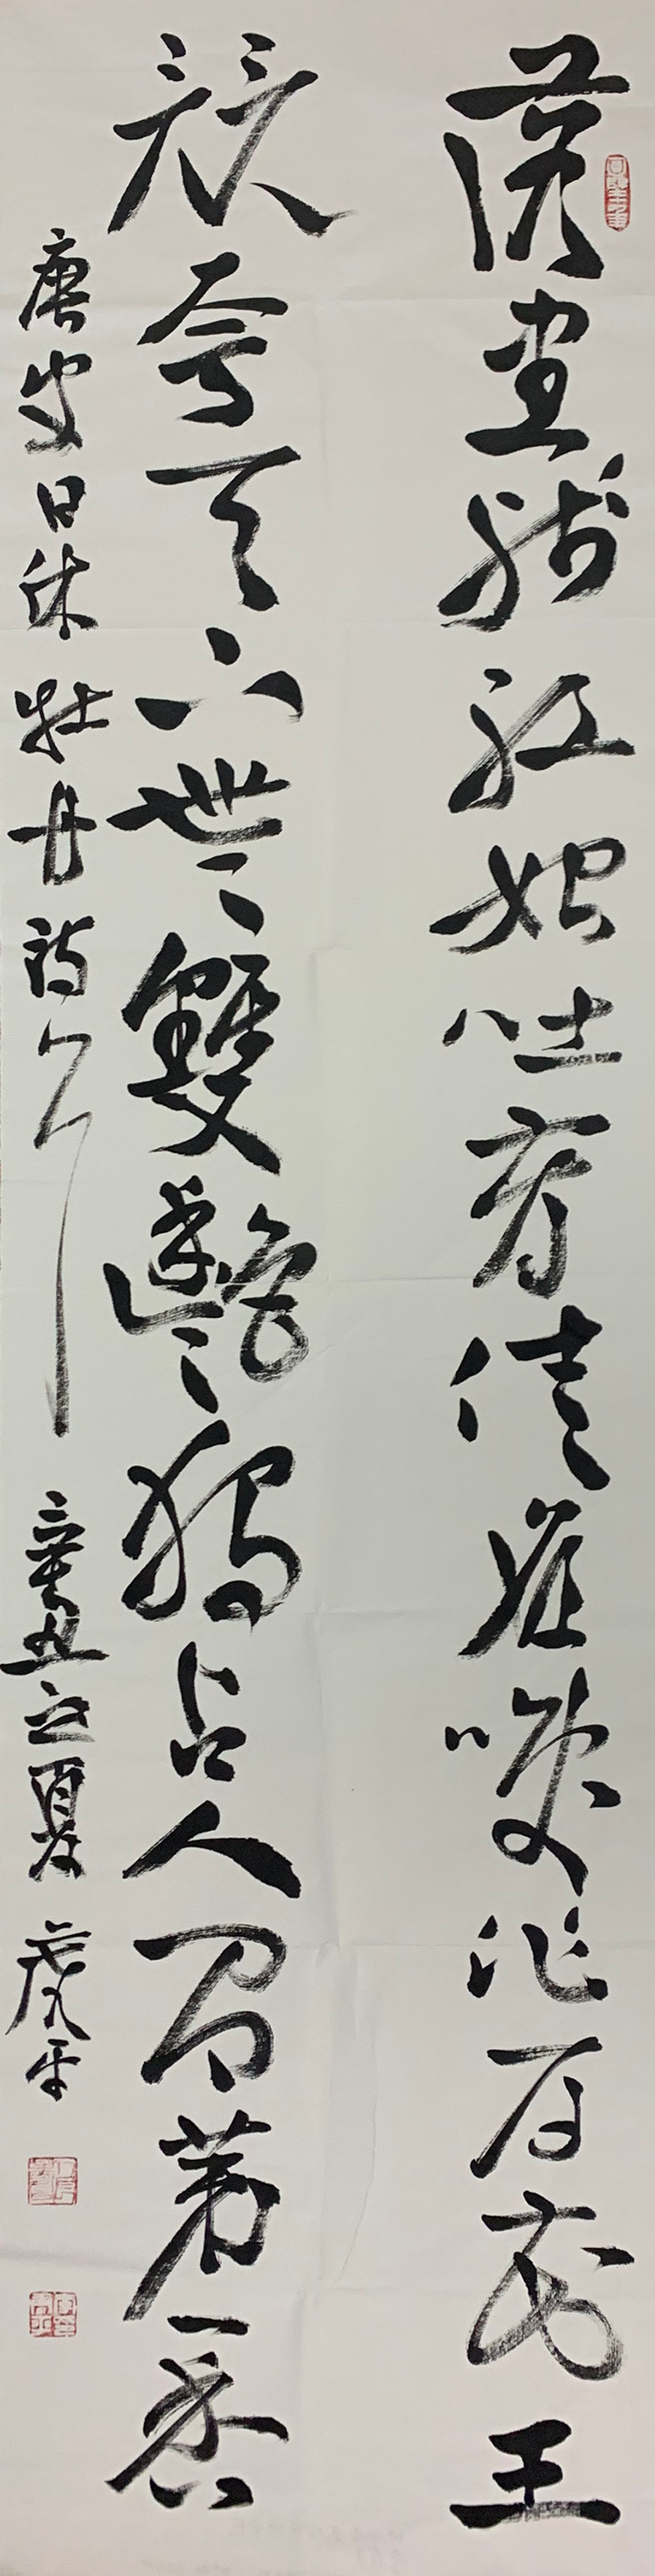 落盡残紅始吐芳佳名喚作百花王
競夸天下無雙艷獨占人間第一香
唐皮日休牡丹詩一首 辛丑之夏 平